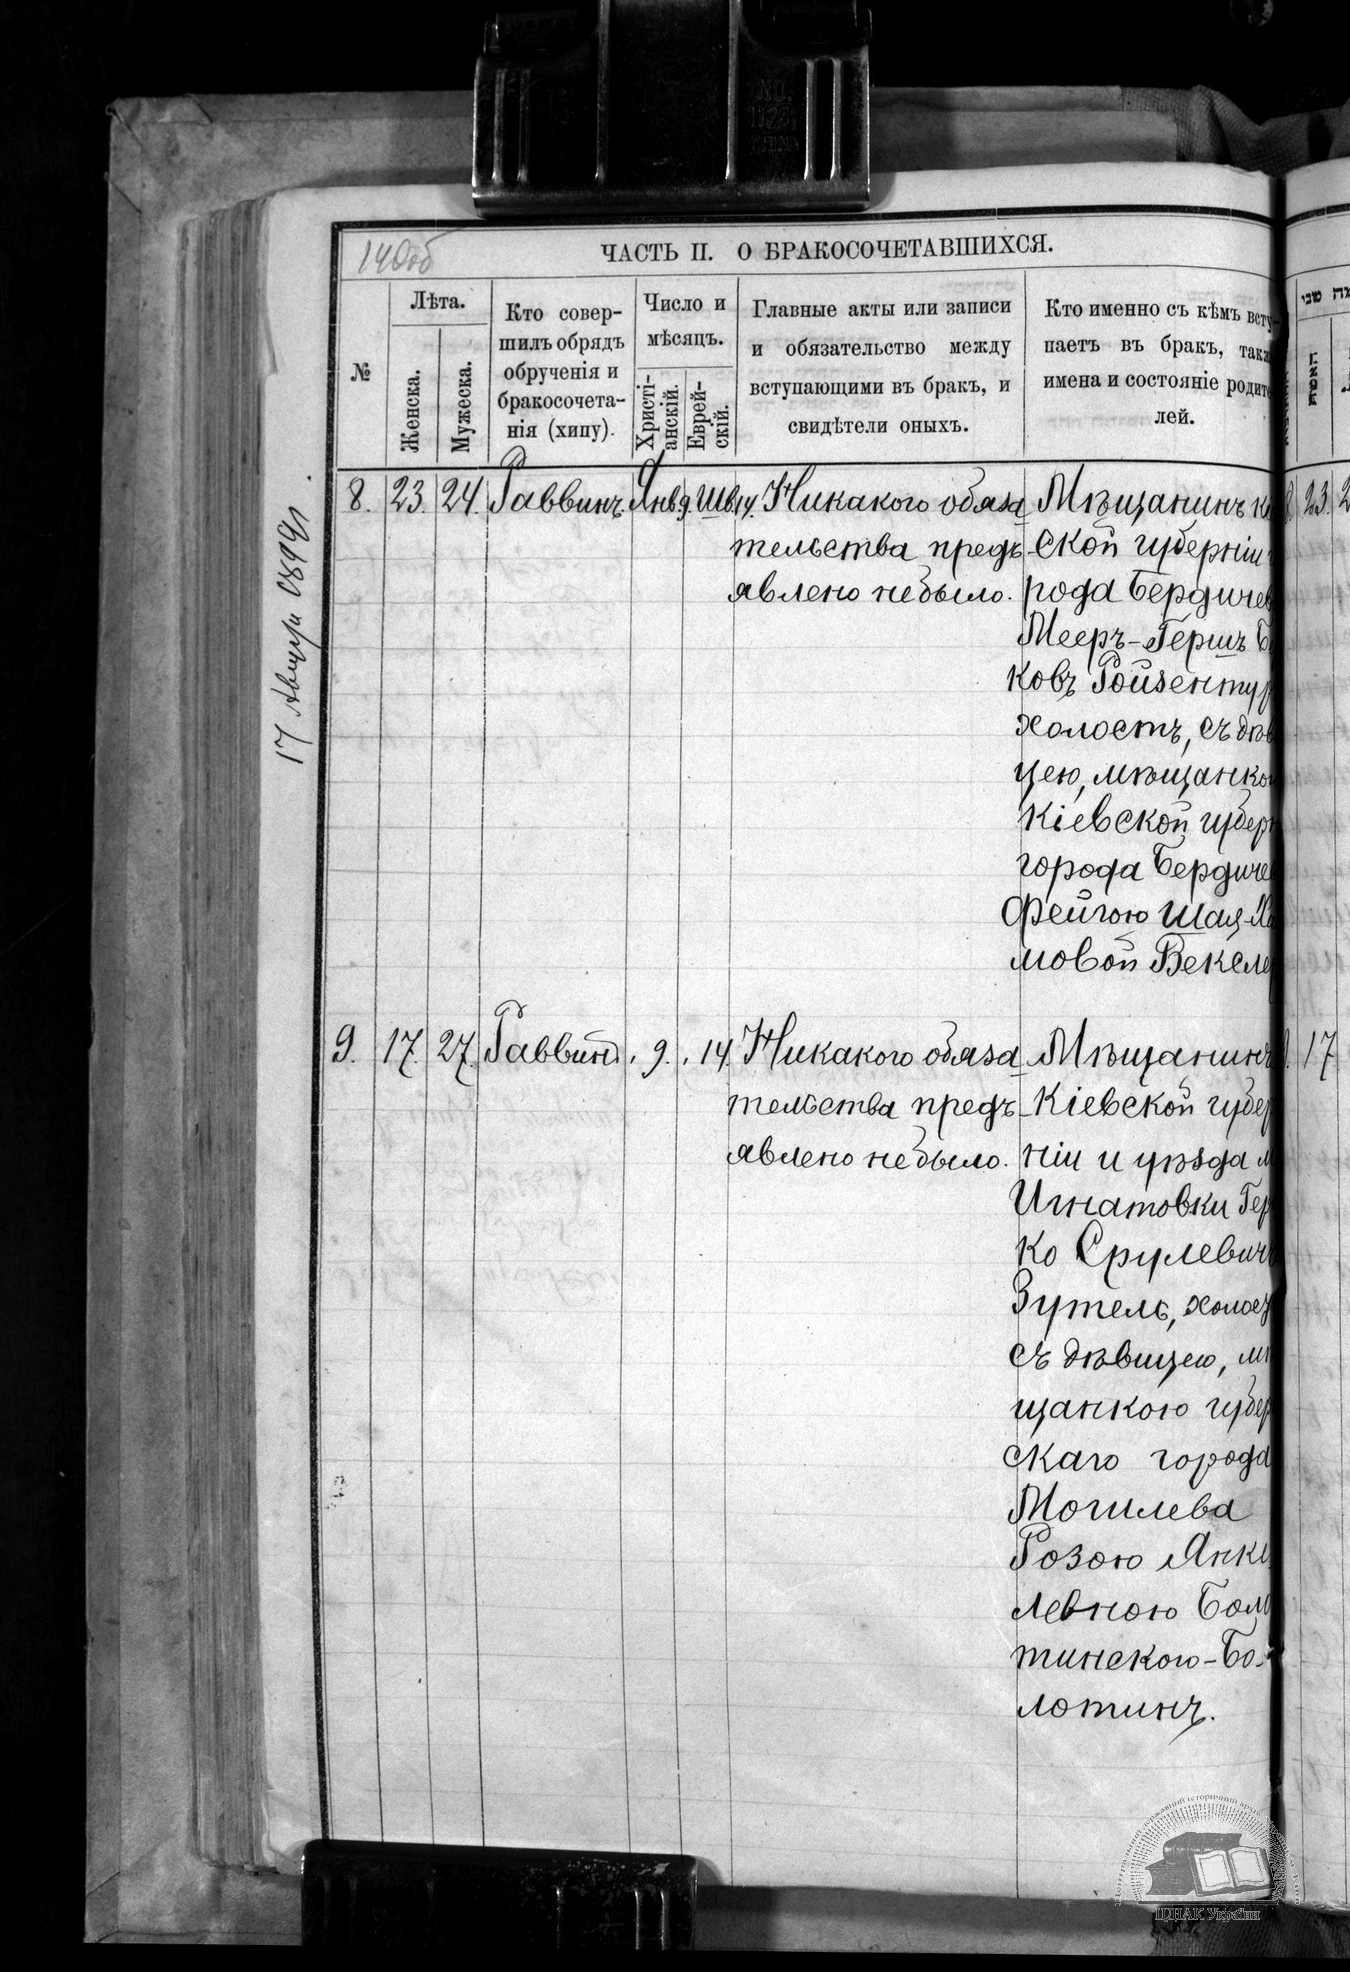 140об
ЧАСТЬ II. О БРАКОСОЧЕТАВШИХСЯ.
№
Лѣта.
Женска.
Мужеска.
Кто совер-
шилъ обрядъ
обрученія и
бракосочета-
нія (хипу).
Число и
мѣсяцъ.
Христі-
анскій.
Еврей-
скій.
Главные акты или записи
и обязательство между
вступающими въ бракъ, и
свидѣтели оныхъ.
Кто именно съ кѣмъ всту-
паетъ въ бракъ, такж
имена и состояніе родите
лей.
8. 23. 24. Раввинъ. Янв 9. Шв. 14.
Никакого обяза
тельства предъ-
явлено небыло.
Мѣщанинъ
ской губерніи
рода Бердичев
Мееръ-Гершъ
ковъ Ройзентур
холостъ, съ дѣв
цею, мѣщанко
Кіевской губер
города Бердиче
Фейгою Шая-
мовой Векслер
9. 17. 27. Раввинъ. 9. 14.
Никакого обяза
тельства предъ-
явлено небыло.
Мѣщанинъ
Кіевской губер
ніи и уѣзда м
Игнатовки Гер
ко Срулевич
Зутель, холост
съ дѣвицею, мѣ
щанкою губер
скаго города
Могилева
Розою Янке
левною Боло
тинского-Бо-
лотинъ.
23. 2
17
האשה
ЦДІАК України